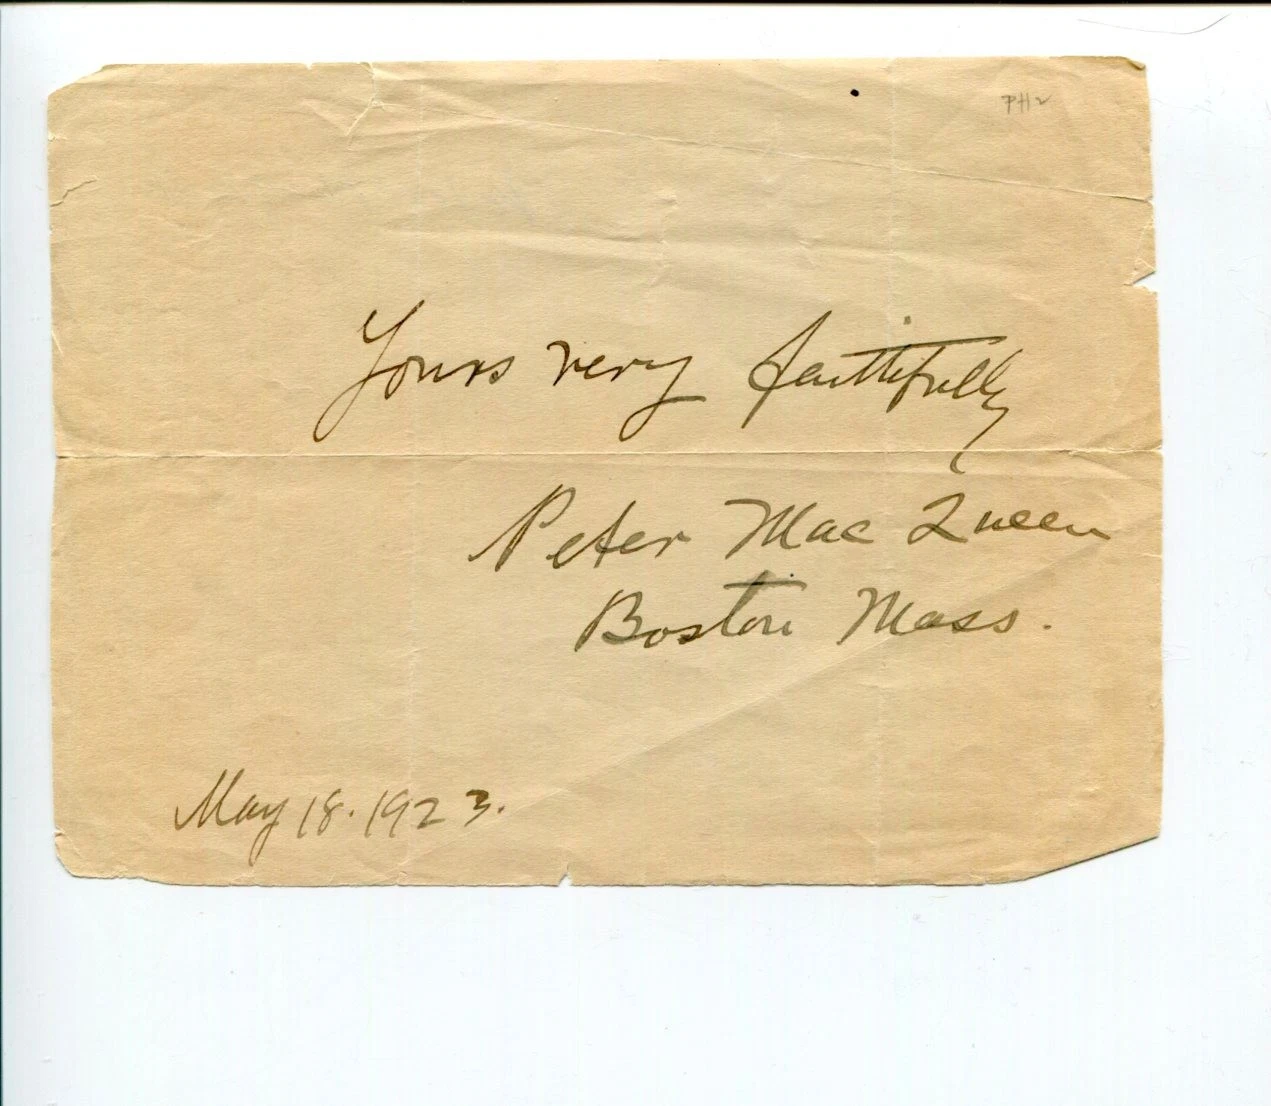 PH2
Yours very faithfully
Peter Mac Queen
Boston Mass.
May 18. 1923.